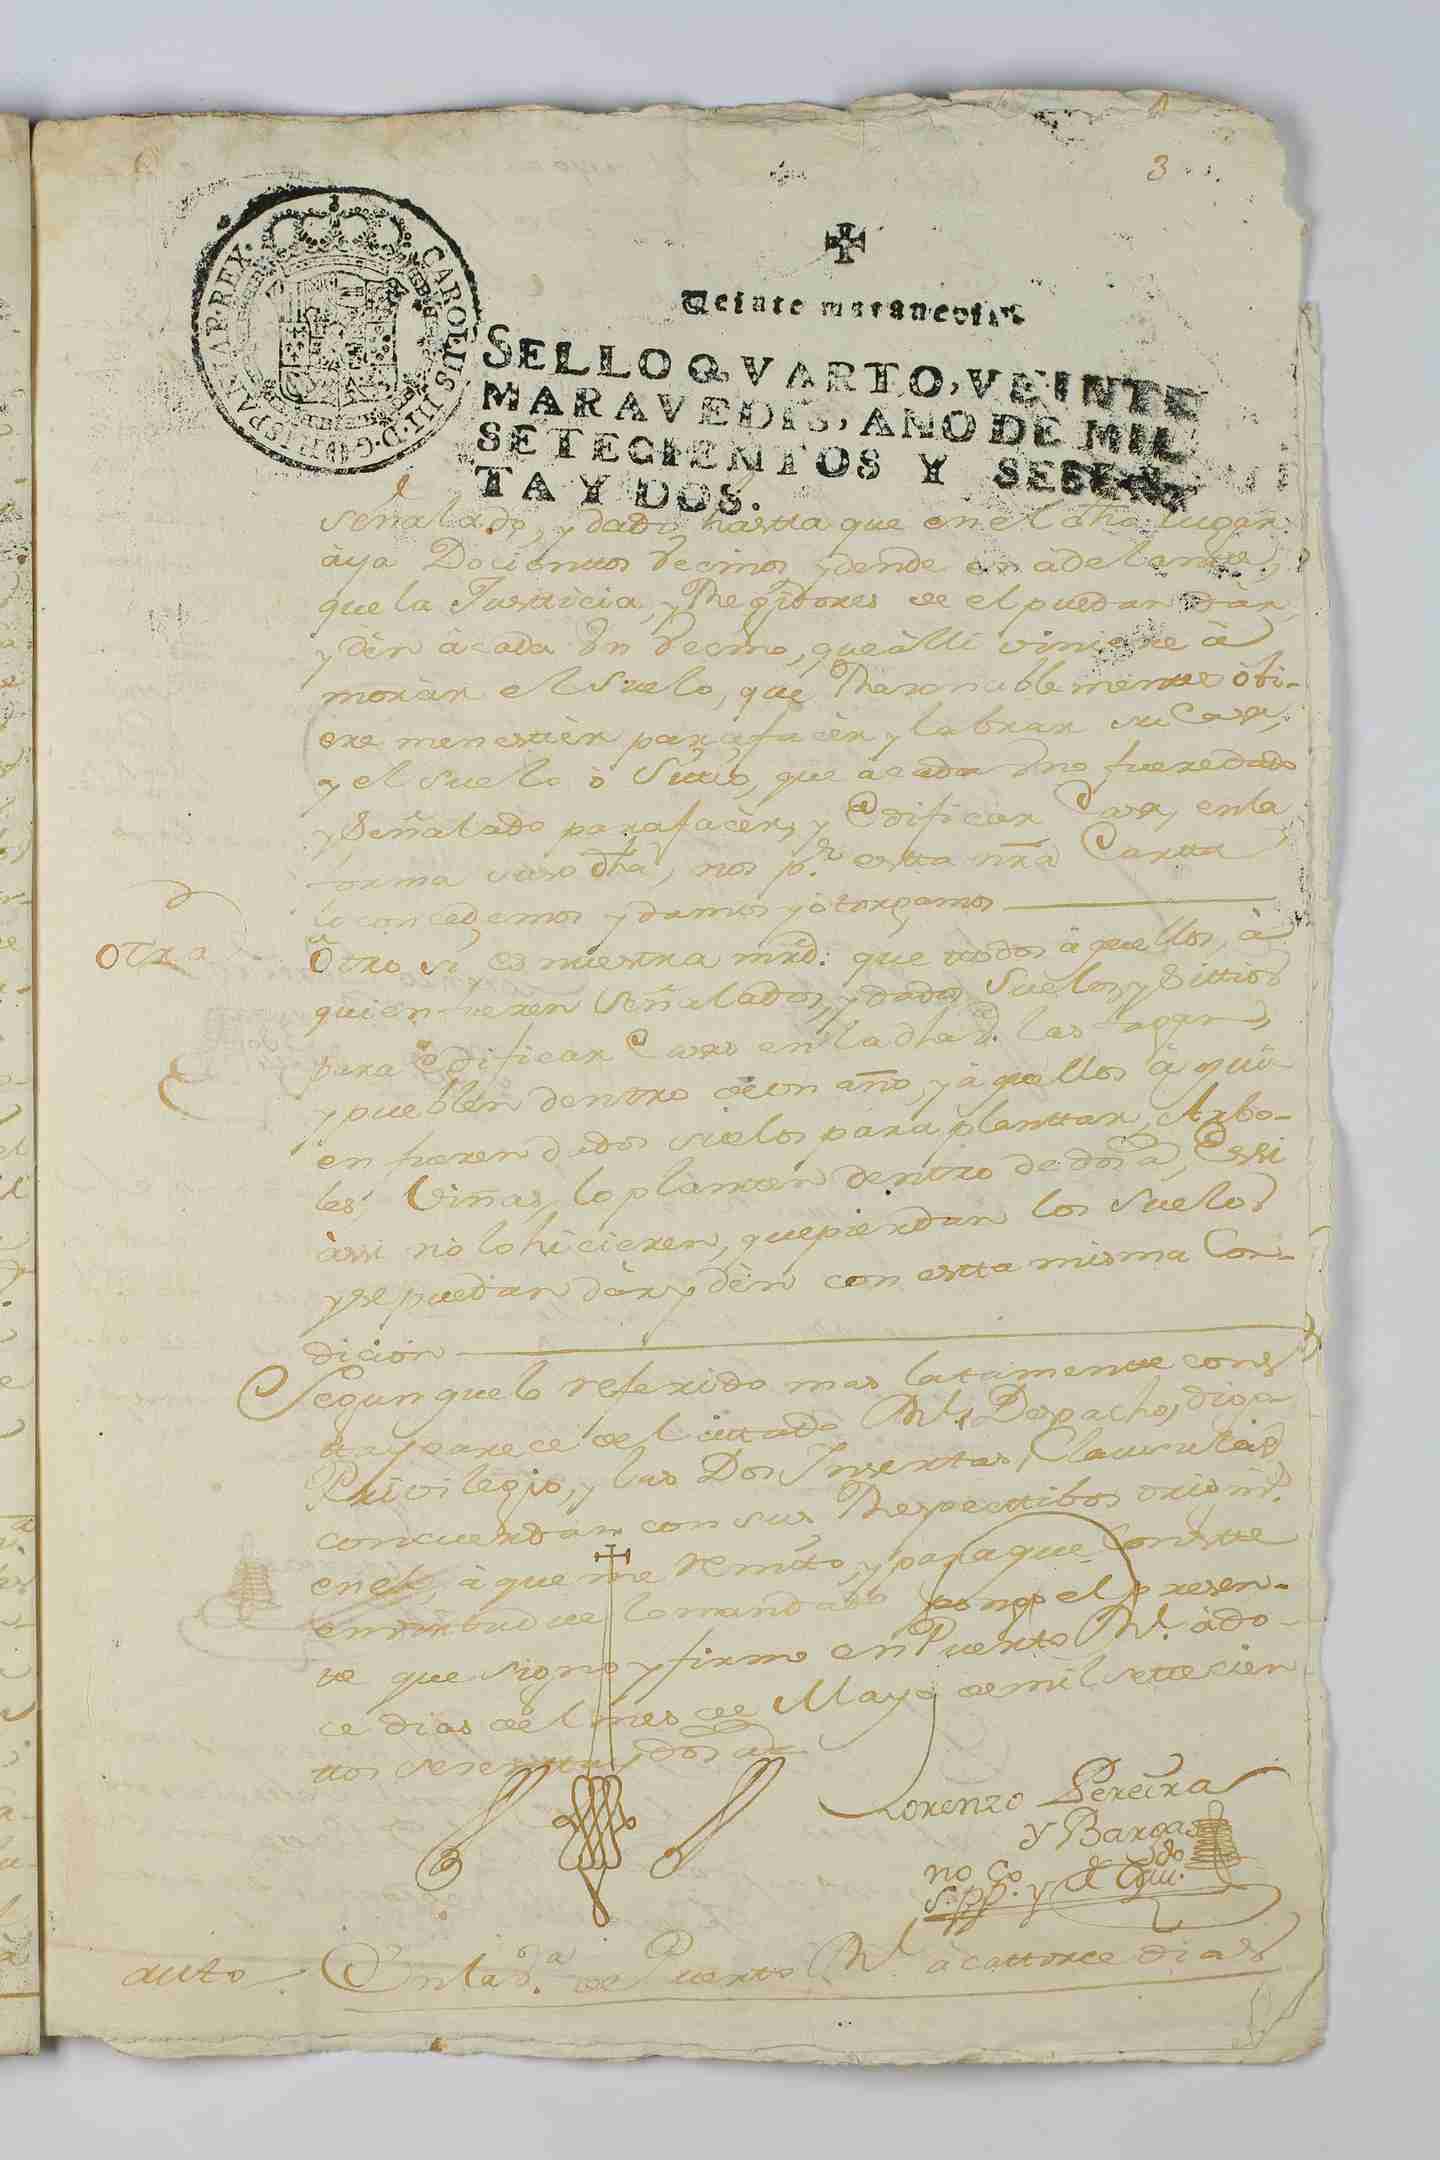 3
CAROLUS III. D. G. HISPANIAR. REX.
Veinte maravedis.
SELLO QVARTO, VEINTE
MARAVEDIS, AÑO DE MIL
SETECIENTOS Y SESEN
TA Y DOS.
señalado, y dado, hastta que en el dho lugar
àya Docienttos vecinos y dende en àdelantte,
que la Justticia, y Regidores de el puedan dàr,
y dèn àcada Un vecino, que àllí viniere à
moràr el Suelo, que Rasonablementte òbi-
ere menestter para facèr y labrar su Casa,
y el suelo ò Sittio, que àcada Uno fuere dado
y Señalado para facèr, y Edificar Casa, en la
forma suso dha, nos pr. estta nra Cartta
lo concedemos y damos y òtorgamos
Otra
Òtro si es nuestra mrd: que ttodos àquellos, à
quien fueren Señalados, y dados Suelos, y Sittios
para Edificar Casas en la dha las fagan,
y pueblèn dentro de un año, y àquellos à qui-
en fueren dados suelos para planttar Arbo-
les, Viñas, lo plantten dentro de dos as, Essi
àssi nò lo hicieren, que pierdan los suelos
y se puedan dàr y dèn con estta misma Con-
dición
Segun que lo referido mas latamentte cons
tta y parece de el cittado Rl. Despacho, digo
Privilegio, y las Dos Insertas Clausulas,
concuerdan con sus Respecttibos origins.
en el, à que me remitto, y para que Constte
en virtud de lo mandado pongo el presen-
te que signo y firmo en Puerto Rl. à do-
ce dias de el mes de Mayo de mil settecien
ttos sesentta y dos as
Lorenzo Pereira
y Bargas
no co
s. pp. y de Gvi.do
auto
En la Va. de Puerto Rl. à cattorce dias